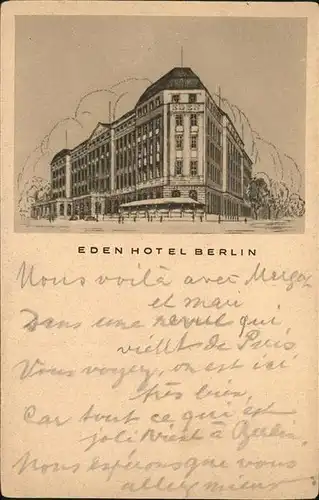 EDEN
EDEN HOTEL BERLIN
Nous voilà avec Marga
et man
Dans une revue qui
vient de Paris
Vous voyez, on est ici
très bien,
Car tout ce qui est
joli vient à Berlin.
Nous espérons que vous
allez mieux